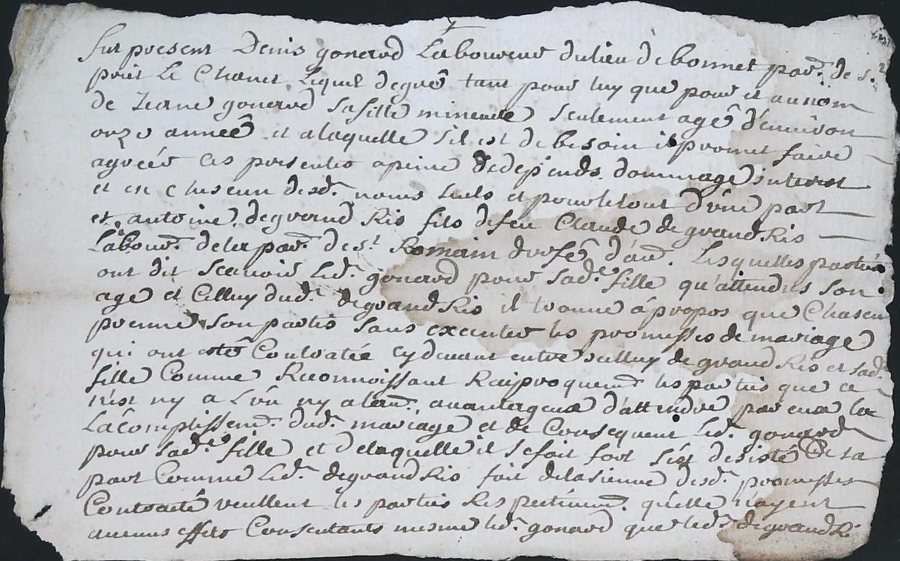 Fut present Denis gonard Laboureur du lieu de bonnet par. de s.t
priet La Chanet Lequel de gré tant pour luy que pour et au nom
de gonard sa fille mineure seulement agée d'environ
onze année et a laquelle s'il est de besoin il promet faire
agréer ces presentes a peine de depends dommage interest
et en chascun desd. noms seuls et pour le tout d'une part
et antoine degrand Ris fils de feu Claude de grand Ris
Labour. de la par. de s.t Romain d'urfé d'au. Lesquelles parties
ont dit scavoir led. gonard pour sad. fille qu'attendu son
age et Celluy dud. degrand Ris il trouve à propos que Chascun
prenne son partis sans executer les promesses de mariage
qui ont esté Contractée cy devant entre celluy degrand Ris et sad.
fille Comme Reconnoissant Reciproquem. les parties que ce
n'est ny a L'un ny a lau. avantageux d'attendre par eux la
L'acomplissem. dud. mariage et de Consequent led. gonard
pour sad. fille et de laquelle il se fait fort s'est desisté de sa
part Comme led. degrand Ris fait de la sienne desd. promesses
Contracté veullent les parties Respectivem. qu'elle n'ayent
aucuns effets Consentants mesme led. gonard que led. degrand Ri